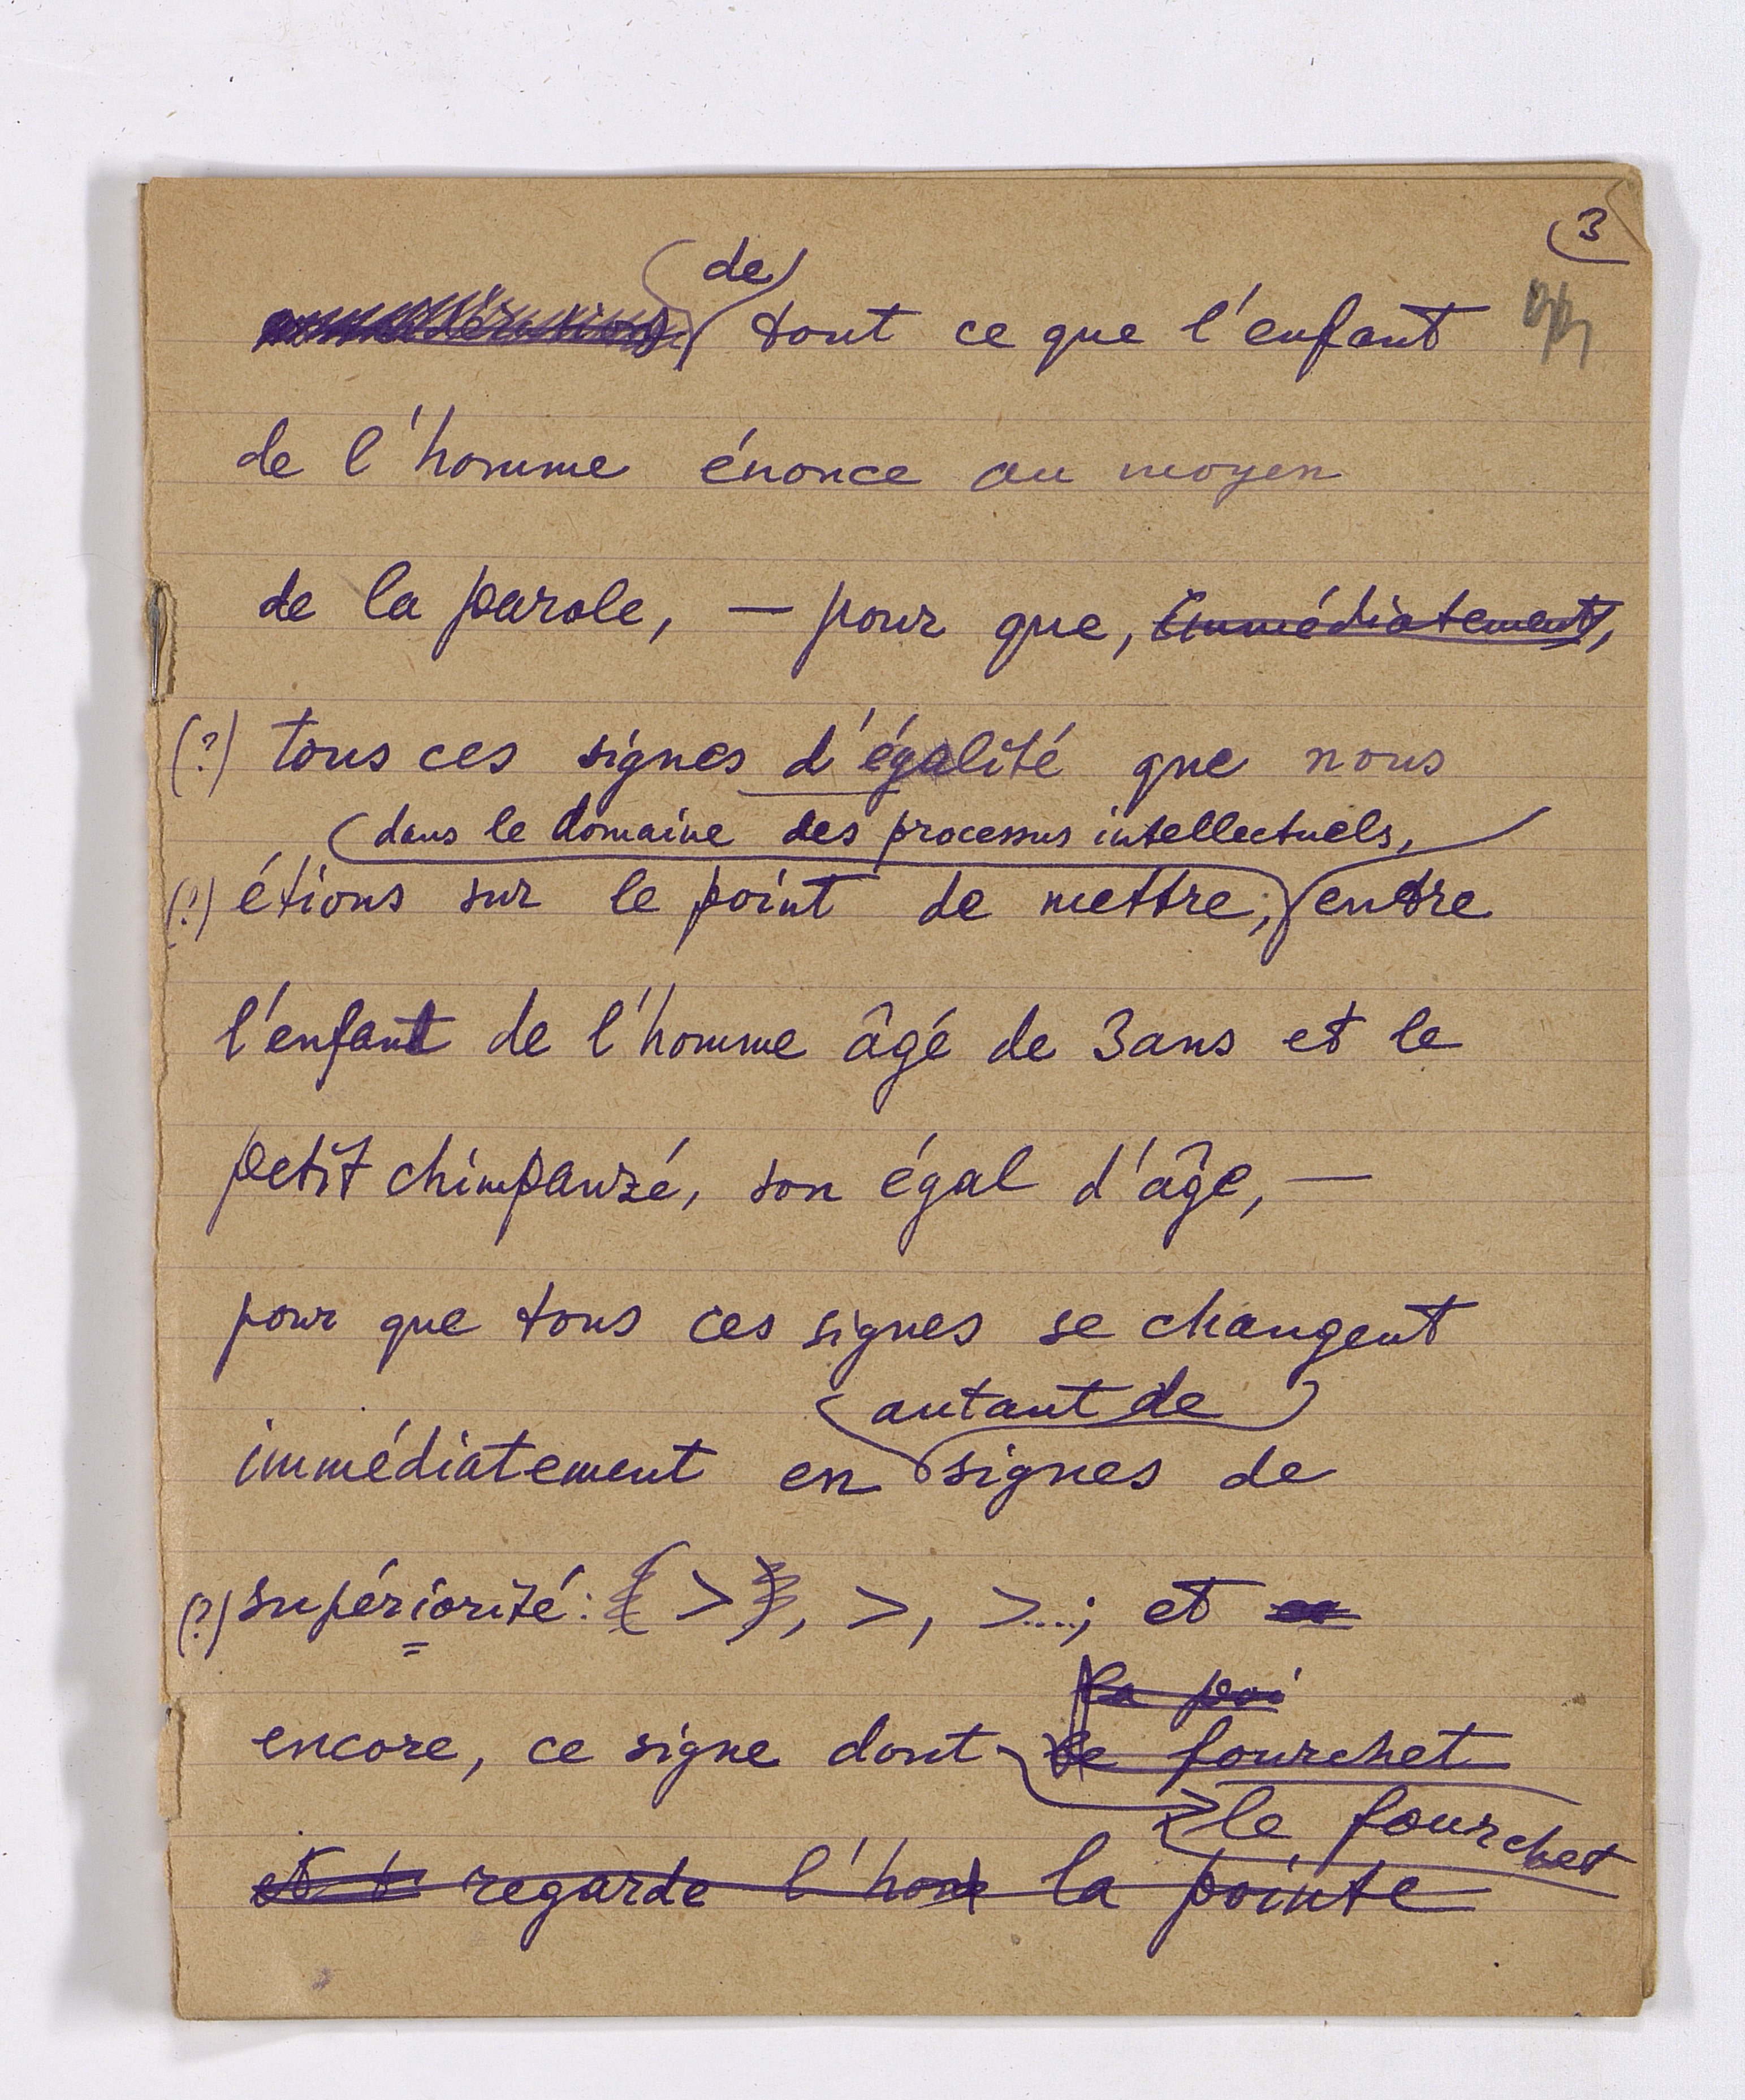 3
de
tout ce que l'enfant
de l'homme énonce au moyen
de la parole, — pour que, immédiatement,
(?) tous ces signes d'égalité que nous
dans le domaine des processus intellectuels,
(?) étions sur le point de mettre, entre
l'enfant de l'homme âgé de 3 ans et le
petit chimpanzé, son égal d'âge, —
pour que tous ces signes se changent
autant de
immédiatement en signes de
(?) supériorité: >, >, >...; et
la poi
encore, ce signe dont le fourchet
le fourchet
regarde l'hom la pointe